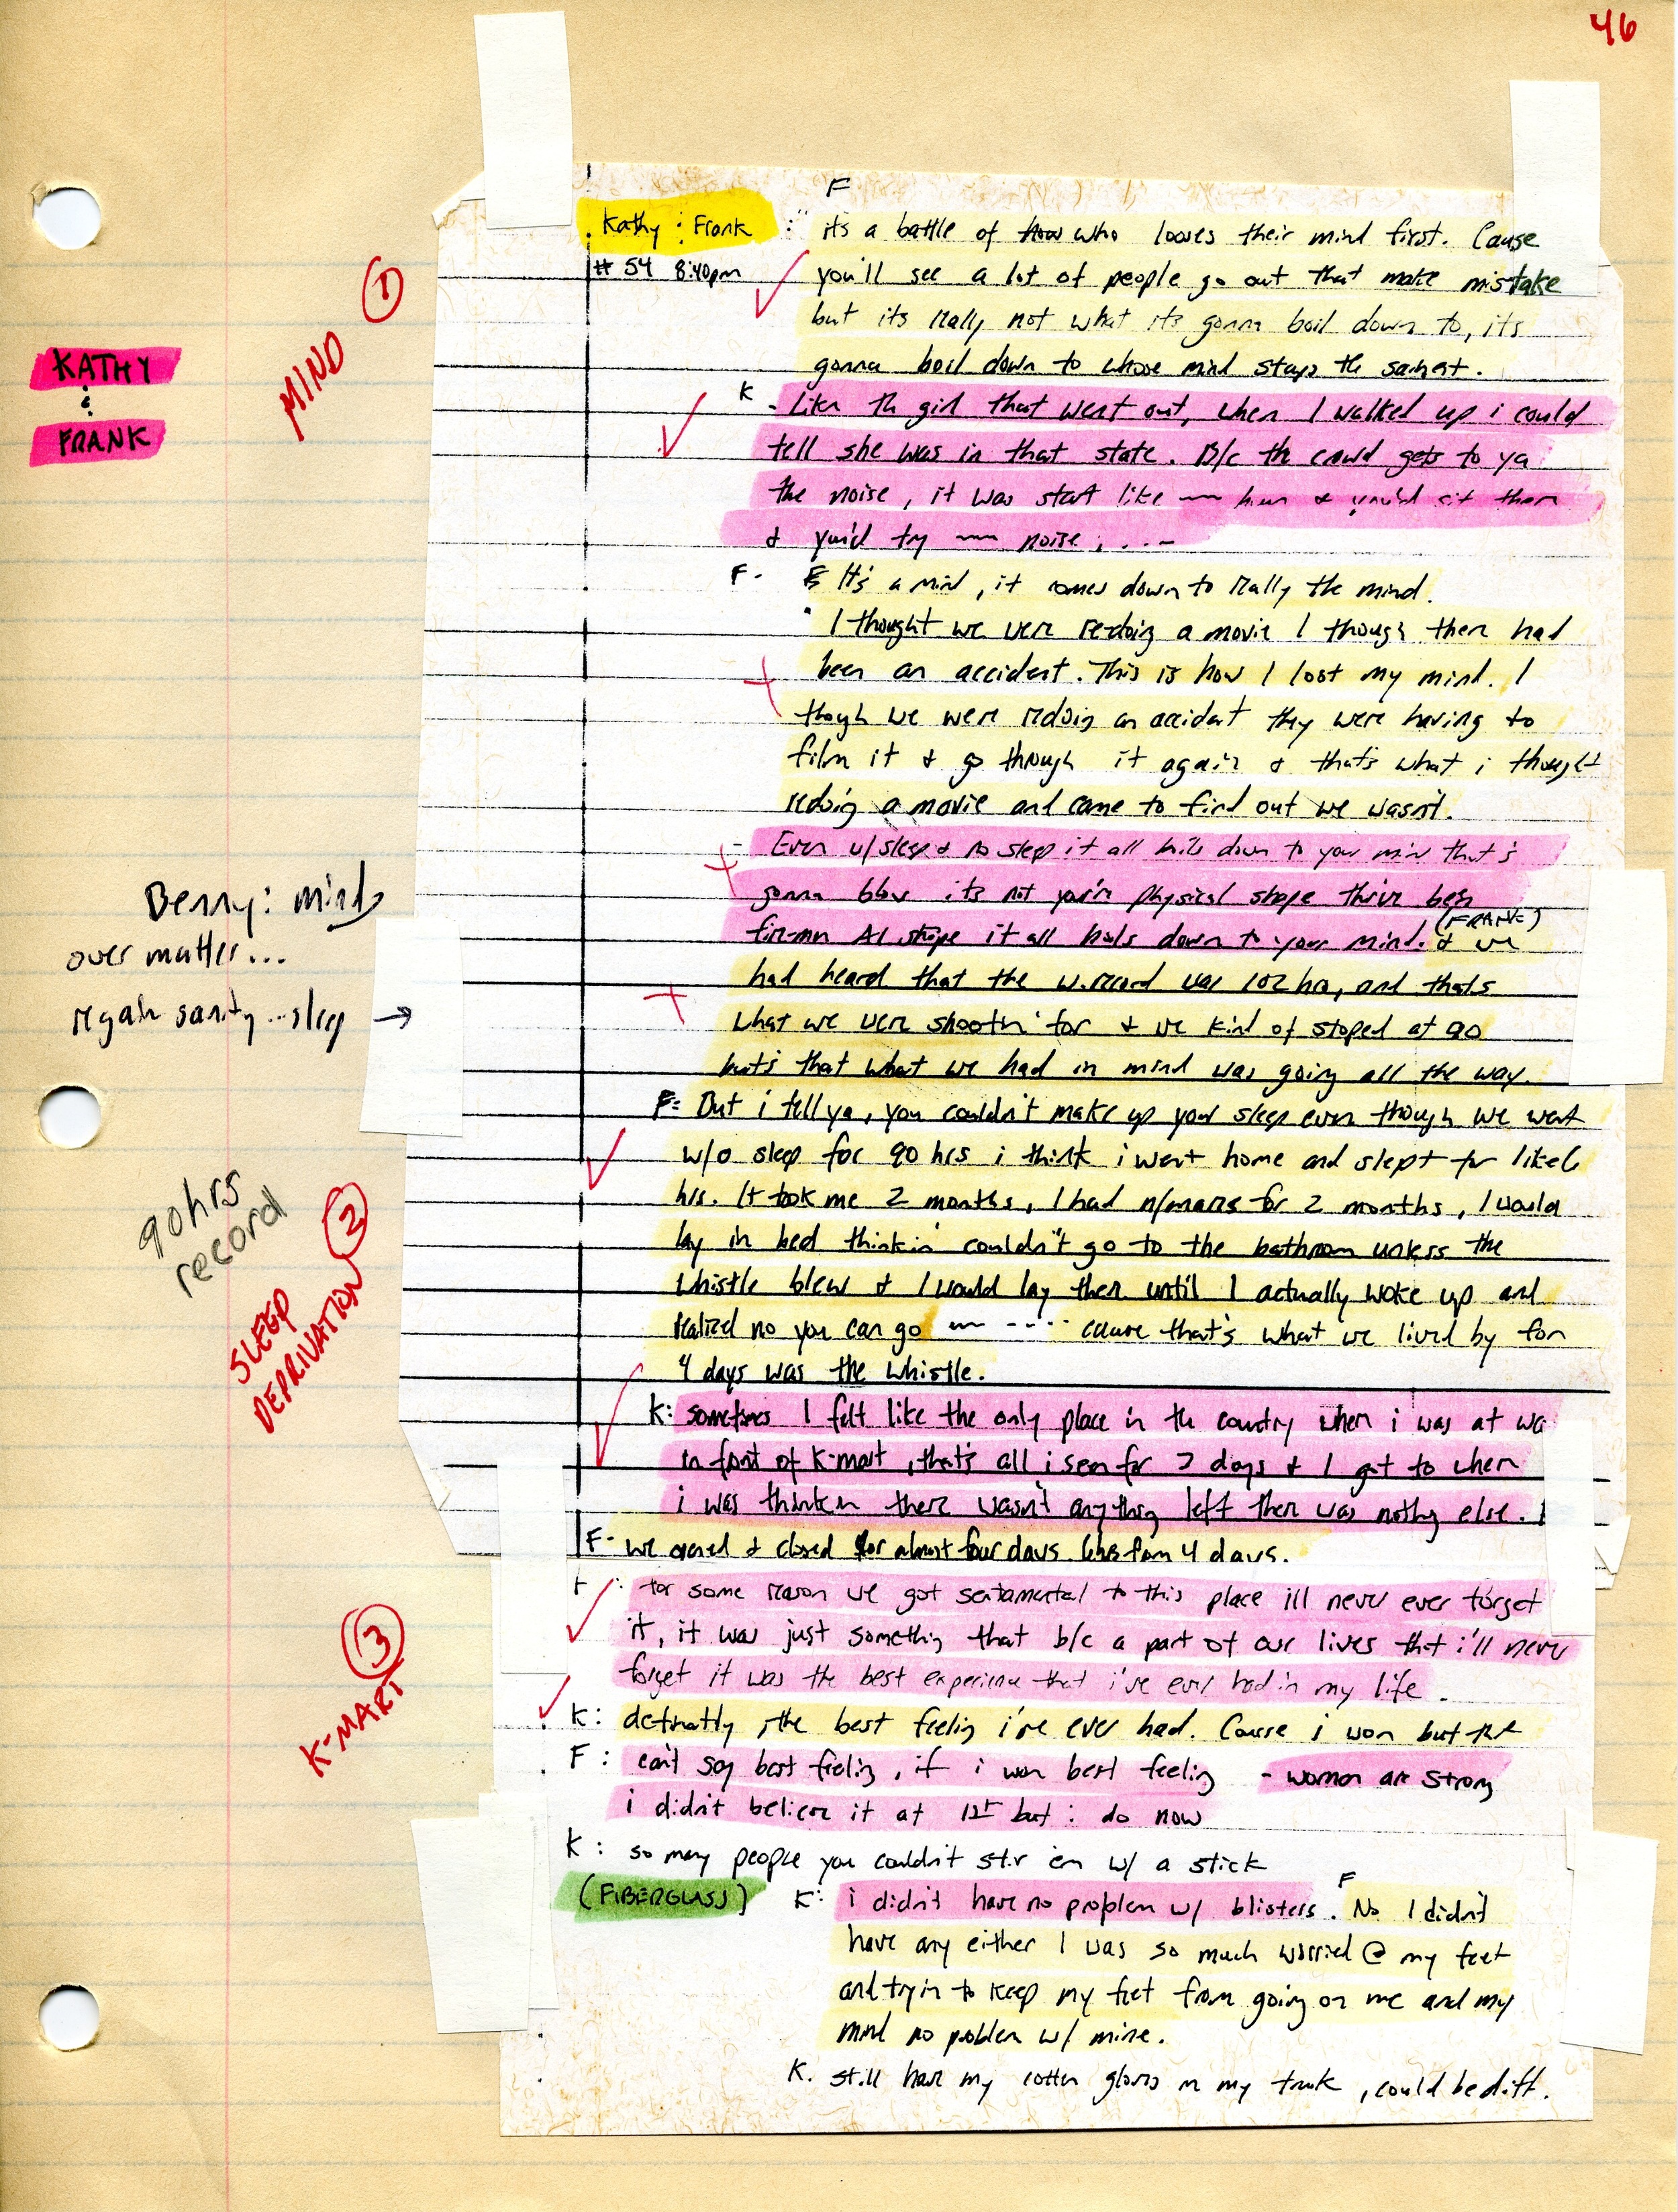 46
KATHY
&
FRANK
MIND ①
Benny: mind
over matter...
regain sanity...sleep →
90hrs
record
SLEEP
DEPRIVATION ②
K-MART ③
F
Kathy : Frank : " its a battle of who looses their mind first. Cause
# 54 8:40pm you'll see a lot of people go out that make mistake
but its really not what its gonna boil down to, its
gonna boil down to whose mind stays the sainest.
K - Like th girl that went out, when I walked up i could
tell she was in that state. B/c the crowd gets to ya
the noise, it was start like hum & you'd sit there
& you'd try noise, ...
F- It's a mind, it comes down to really the mind.
" I thought we were redoing a movie I though there had
been an accident. This is how I lost my mind. I
though we were redoing an accident they were having to
film it & go through it again & that's what i thought
redoing a movie and came to find out we wasn't.
- Even w/sleep & no sleep it all boils down to your mind that's
gonna blow its not you're physical shape been
A1 shape it all boils down to your mind. (FRANK) & we
had heard that the w.record was 102 hrs, and thats
what we were shootin' for & we kind of stoped at 90
but that what we had in mind was going all the way.
F: But i tell ya, you couldn't make up your sleep even though we went
w/o sleep for 90 hrs i think i went home and slept for like 6
hrs. It took me 2 months, I had n/mares for 2 months, I would
lay in bed thinkin' couldn't go to the bathroom unless the
whistle blew & I would lay there until I actually woke up and
realized no you can go ---- cause that's what we lived by for
4 days was the whistle.
K: sometimes I felt like the only place in the country when i was at wa
in front of K-mart, that's all i seen for 3 days & I got to where
i was thinkin there wasn't anything left there was nothing else. I
F- we opened & closed for almost four days. 6hrs from 4 days.
: for some reason we got sentamental to this place ill never ever forget
it, it was just something that b/c a part of our lives that i'll never
forget it was the best experience that i've ever had in my life.
K: definatly, the best feeling i've ever had. Cause i won but the
F: can't say best feeling, if i won best feeling - women are strong
i didn't believe it at 1st but i do now
K: so many people you couldn't stir em w/ a stick
(FIBERGLASS) K: i didn't have no problem w/ blisters. F No I didn't
have any either I was so much worried @ my feet
and tryin to keep my feet from going on me and my
mind no problem w/ mine.
K. still have my cotten gloves in my truck, could be diff.